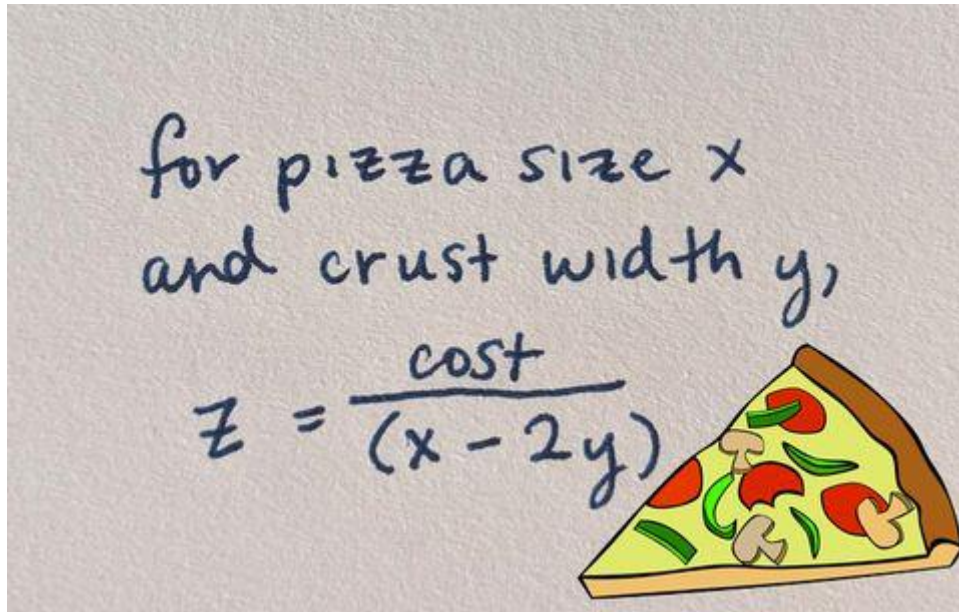 for pizza size x
and crust width y,
z = cost / (x - 2y)